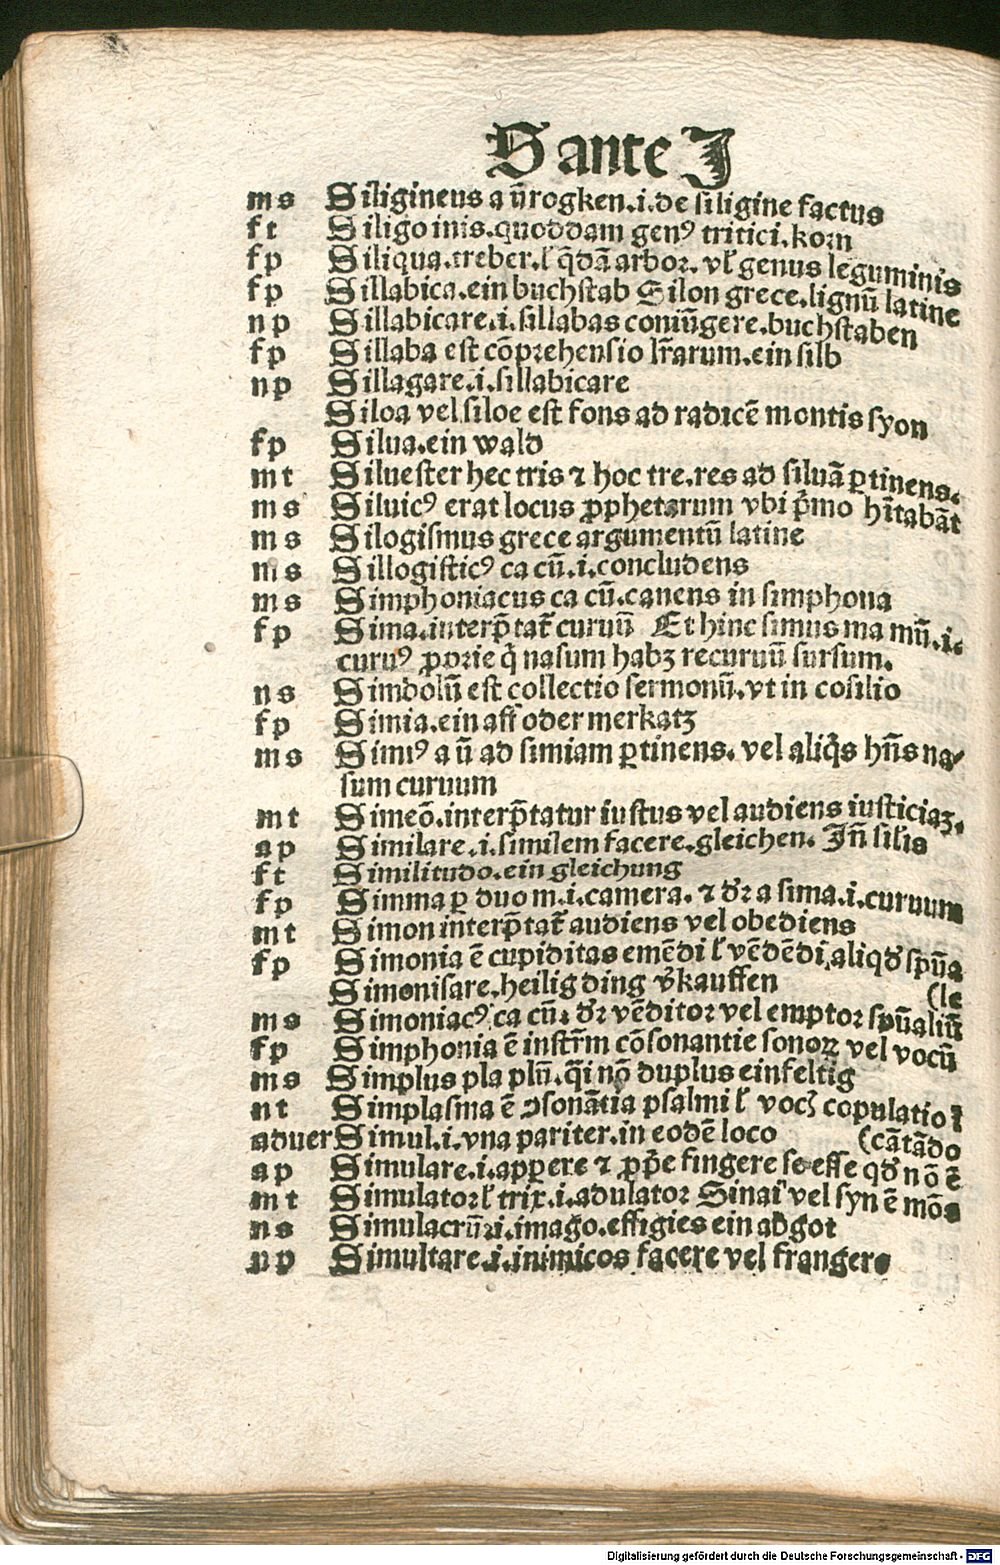 S ante I
m s Siligineus a ūrogken.i.de siligine factus
f t Siligo inis.quoddam genꝰ tritici.korn
f p Siliqua.treber.ł q̄dā arbor. vł genus leguminis
f p Sillabica.ein buchstab Silon grece.lignū latine
n p Sillabicare.i.sillabas coniūgere.buchstaben
f p Sillaba est cōprehensio lr̄arum.ein silb
n p Sillagare.i.sillabicare
Siloa vel siloe est fons ad radicē montis syon
f p Silua.ein wald
m t Siluester hec tris ⁊ hoc tre.res ad siluā ꝑtinens.
m s Siluicꝰ erat locus ꝓphetarum vbi p̄mo hītabāt
m s Silogismus grece argumentū latine
m s Sillogisticꝰ ca cū.i.concludens
m s Simphoniacus ca cū.canens in simphona
f p Sima.interp̄tat᷑ curuū Et hinc simus ma mū.i.
curuꝰ ꝓprie q̇ nasum habꝫ recuruū sursum.
n s Simbolū est collectio sermonū.vt in cosilio
f p Simia.ein aff oder merkatz
m s Simiꝰ a ū ad simiam ꝑtinens. vel aliq̇s hn̄s na-
sum curuum
m t Simeō.interp̄tatur iustus vel audiens iusticiaꝫ.
a p Similare.i.similem facere.gleichen. Jn̄ silis
f t Similitudo.ein gleichung
f p Simma ꝑ duo m.i.camera. ⁊ dr̄ a sima.i.curuum
m t Simon interp̄tat᷑ audiens vel obediens
f p Simonia ē cupiditas emēdi ł vēdēdi aliqd̄ spūa
Simonisare.heilig ding v̄kauffen (le
m s Simoniacꝰ ca cū. dr̄ vēditor vel emptor spūaliū
f p Simphonia ē instr̄m cōsonantie sonoꝝ vel vocū
m s Simplus pla plū.q̄i nō duplus einfeltig
n t Simplasma ē ꝯsonātia psalmi ł vocꝭ copulatio ī
aduer Simul.i.vna pariter.in eodē loco (cātādo
a p Simulare.i.apꝑere ⁊ ꝓp̄e fingere se esse qd̄ nō ē
m t Simulator ł trix.i.adulator Sinai vel syn ē mōs
n s Simulacrū.i.imago.effigies ein abgot
n p Simultare.i.inimicos facere vel frangere
Digitalisierung gefördert durch die Deutsche Forschungsgemeinschaft - DFG